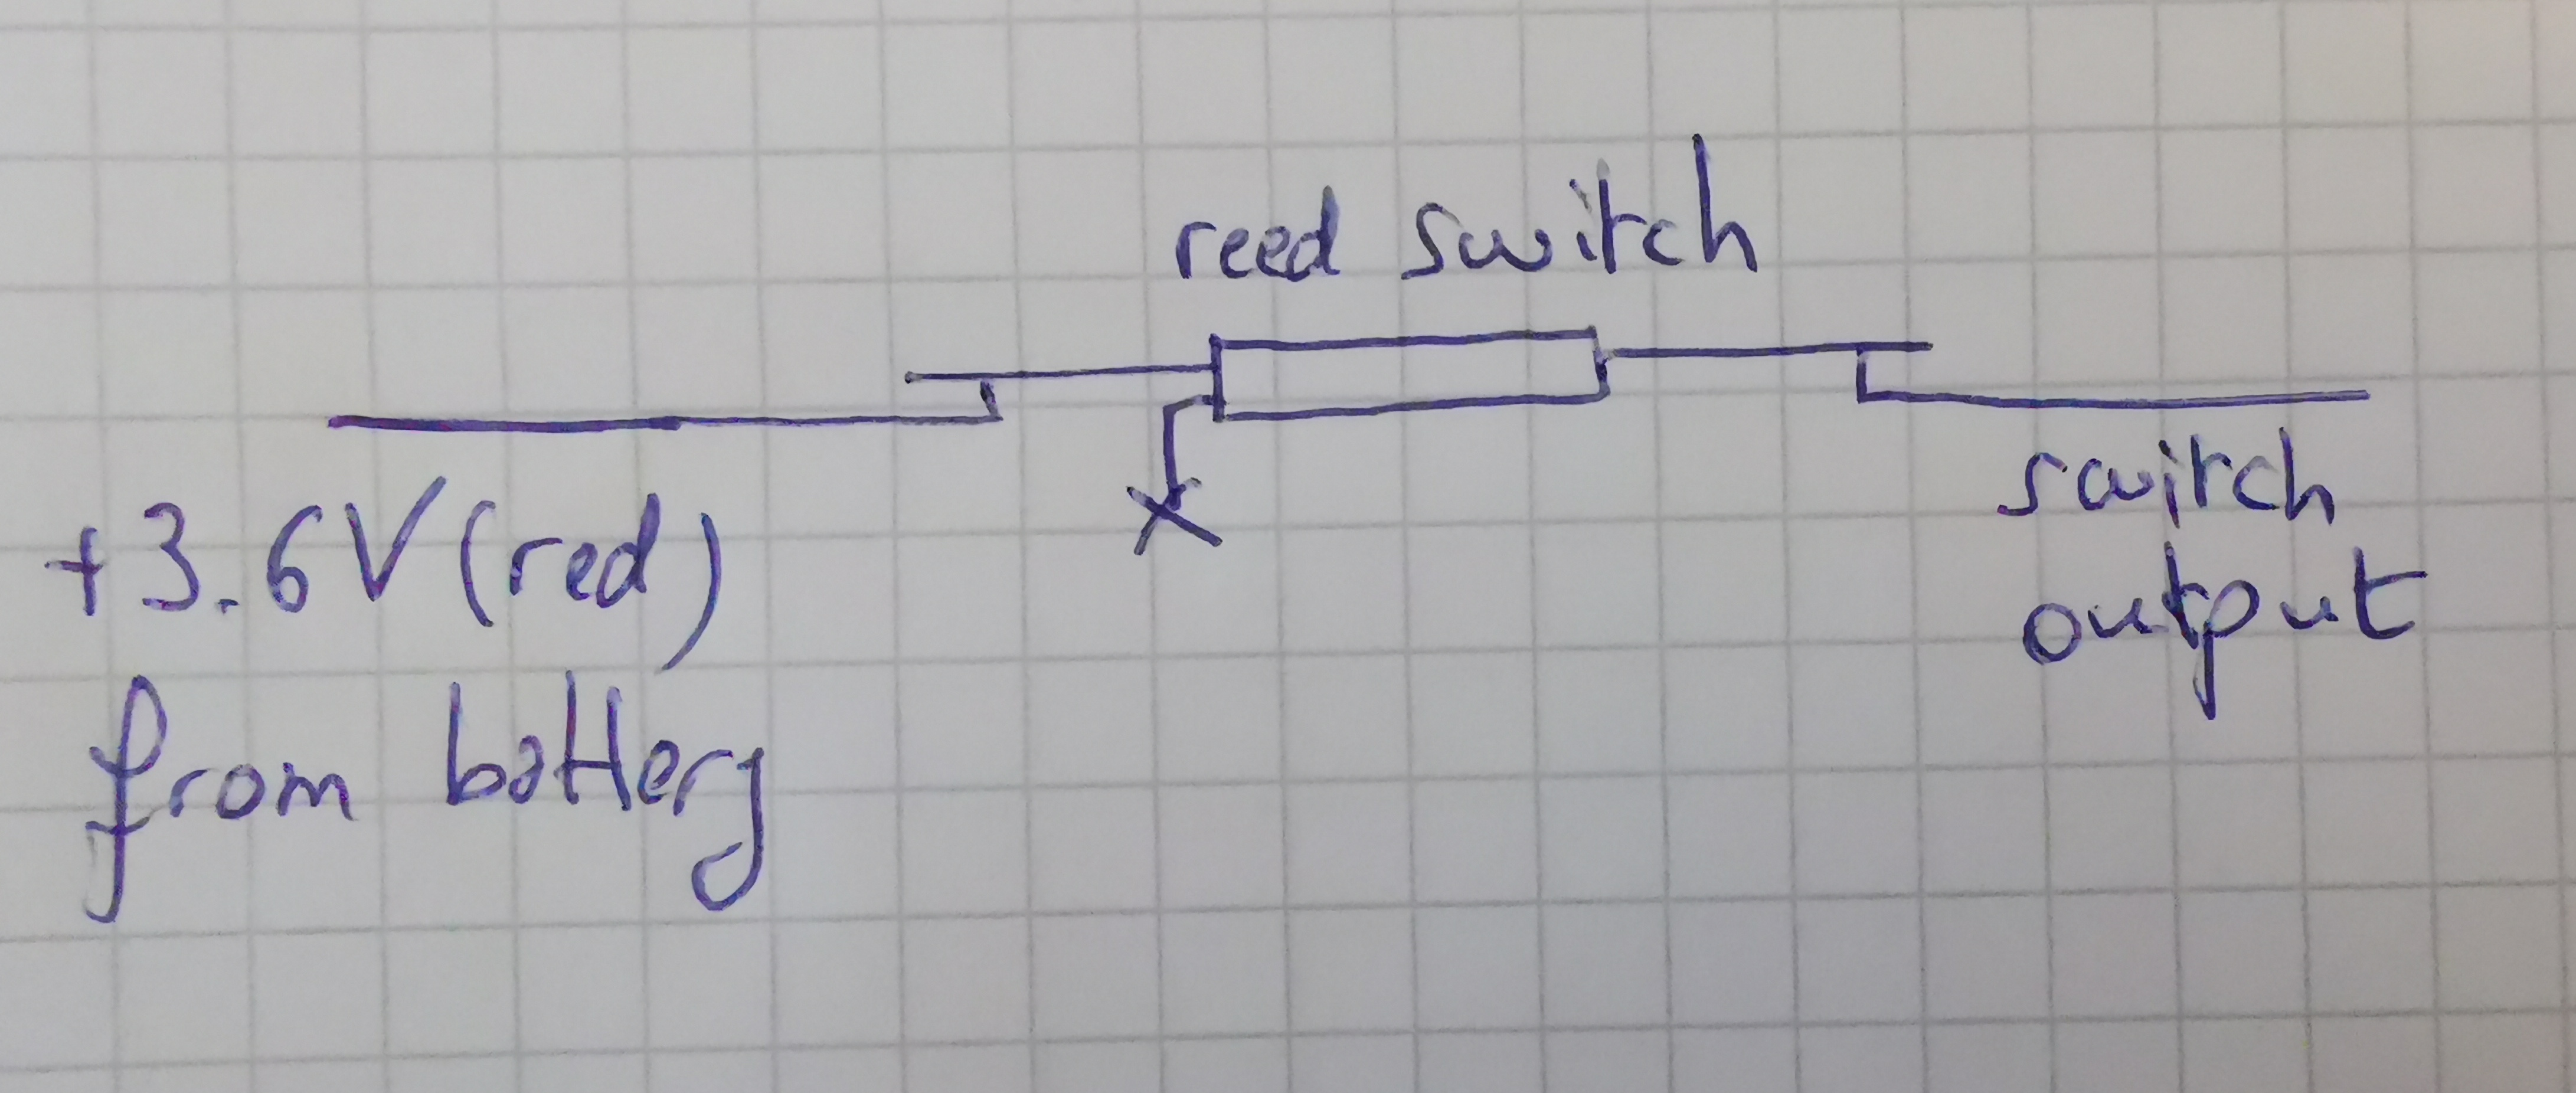 reed switch
+3.6V (red)
from battery
switch
output